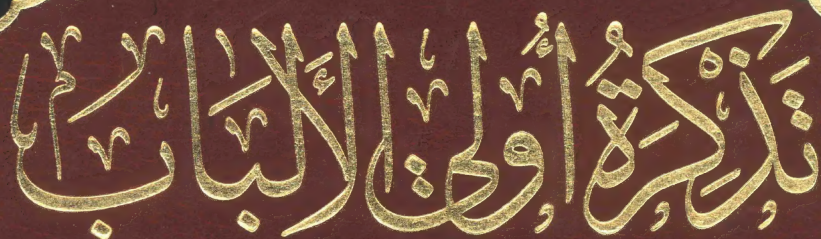 تذكرة أولي الألباب